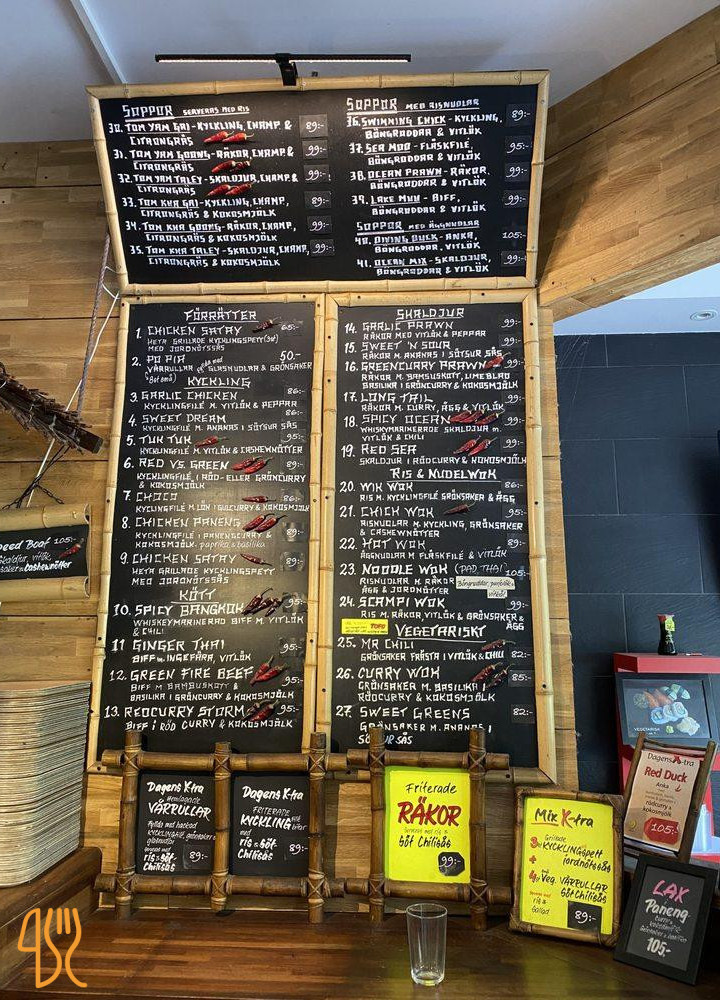 SOPPOR SERVERAS MED RIS
30. TOM YAM GAI - KYCKLING, CHAMP. & 89:-
CITRONGRÄS
31. TOM YAM GOONG - RÄKOR, CHAMP. & 99:-
CITRONGRÄS
32. TOM YAM TALEY - SKALDJUR, CHAMP. & 99:-
CITRONGRÄS
33. TOM KHA GAI - KYCKLING, CHAMP, 89:-
CITRONGRÄS & KOKOSMJÖLK
34. TOM KHA GOONG - RÄKOR, CHAMP, 99:-
CITRONGRÄS & KOKOSMJÖLK
35. TOM KHA TALEY - SKALDJUR, CHAMP, 99:-
CITRONGRÄS & KOKOSMJÖLK
SOPPOR MED RISNUDLAR
36. SWIMMING CHICK - KYCKLING, 89:-
BÖNGRODDAR & VITLÖK
37. SEA MOO - FLÄSKFILÉ, 95:-
BÖNGRODDAR & VITLÖK
38. OCEAN PRAWN - RÄKOR, 99:-
BÖNGRODDAR & VITLÖK
39. LAKE MUU - BIFF, 99:-
BÖNGRODDAR & VITLÖK
SOPPOR MED ÄGGNUDLAR
40. DIVING DUCK - ANKA, 105:-
BÖNGRODDAR, VITLÖK
41. OCEAN MIX - SKALDJUR, 99:-
BÖNGRODDAR & VITLÖK
FÖRRÄTTER
1. CHICKEN SATAY 65:-
HETA GRILLADE KYCKLINGSPETT (3st)
MED JORDNÖTSSÅS
2. PO PIA 50.-
VÅRRULLAR GLASNUDLAR & GRÖNSAKER
KYCKLING
3. GARLIC CHICKEN 86:-
KYCKLINGFILÉ M. VITLÖK & PEPPAR
4. SWEET DREAM 86:-
KYCKLINGFILÉ M. ANANAS I SÖTSUR SÅS
5. TUK TUK 95:-
KYCKLINGFILÉ M. VITLÖK & CASHEWNÖTTER
6. RED VS. GREEN 89:-
KYCKLINGFILÉ I RÖD- ELLER GRÖNCURRY
& KOKOSMJÖLK
7. CHOCO 89:-
KYCKLINGFILÉ M. LÖK I GULCURRY & KOKOSMJÖLK
8. CHICKEN PANENG 89:-
KYCKLINGFILÉ I PANENGCURRY &
KOKOSMJÖLK. paprika & basilika
9. CHICKEN SATAY 89:-
HETA GRILLADE KYCKLINGSPETT
MED JORDNÖTSSÅS
KÖTT
10. SPICY BANGKOK 95:-
WHISKEYMARINERAD BIFF M. VITLÖK
& CHILI
11 GINGER THAI 95:-
BIFF M. INGEFÄRA, VITLÖK
12. GREEN FIRE BEEF 95:-
BIFF M BAMBUSKOTT &
BASILIKA I GRÖNCURRY & KOKOSMJÖLK
13. REDCURRY STORM 95:-
BIFF I RÖD CURRY & KOKOSMJÖLK
SKALDJUR
14. GARLIC PRAWN 99:-
RÄKOR MED VITLÖK & PEPPAR
15. SWEET 'N SOUR 99:-
RÄKOR M. ANANAS I SÖTSUR SÅS
16. GREENCURRY PRAWN 99:-
RÄKOR M. BAMBUSKOTT, LIMEBLAD
BASILIKA I GRÖNCURRY & KOKOSMJÖLK
17. LONG TAIL 99:-
RÄKOR M. CURRY, ÄGG & VITLÖK
18. SPICY OCEAN 99:-
WHISKYMARINERADE SKALDJUR M.
VITLÖK & CHILI
19. RED SEA 99:-
SKALDJUR I RÖDCURRY & KOKOSMJÖLK
RIS & NUDELWOK
20. WIK WOK 86:-
RIS M. KYCKLINGFILÉ GRÖNSAKER & ÄGG
21. CHICK WOK 95:-
RISNUDLAR M. KYCKLING, GRÖNSAKER
& CASHEWNÖTTER
22. HOT WOK 89:-
ÄGGNUDLAR M FLÄSKFILÉ & VITLÖK
23. NOODLE WOK (PAD THAI) 105:-
RISNUDLAR M. RÄKOR
ÄGG & JORDNÖTTER
Böngroddar, purjolök &
vitkål
24. SCAMPI WOK 99:-
RIS M. RÄKOR, VITLÖK & GRÖNSAKER &
ÄGG
TOFU
VEGETARISKT
25. MR CHILI 82:-
GRÖNSAKER FRÄSTA I VITLÖK & CHILI
26. CURRY WOK 85:-
GRÖNSAKER M. BASILIKA I
RÖDCURRY & KOKOSMJÖLK
27. SWEET GREENS 82:-
GRÖNSAKER M. ANANAS I
SÖTSUR SÅS
eed Beef 105:-
Cashewnötter
Dagens X-tra
Hemlagade
VÅRRULLAR
Fyllda med hackad
KYCKLINGFILÉ grönsaker
glasnudlar
serveras med
ris & Söt
Chilisås
89:-
Dagens X-tra
FRITERADE
KYCKLING filé
bitar
med
ris & Söt
Chilisås
89:-
Friterade
RÄKOR
Serveras med ris &
Söt Chilisås
99:-
Mix X-tra
3st Grillade
KYCKLINGspett
jordnötssås
+
4st Veg. VÅRRULLAR
Söt Chilisås
Serveras med
ris &
Sallad
89:-
VEGETARISK
Dagens X-tra
Red Duck
Anka
rödcurry &
kokosmjölk
105:-
LAX
Paneng
Curry
kokosmjölk
105:-